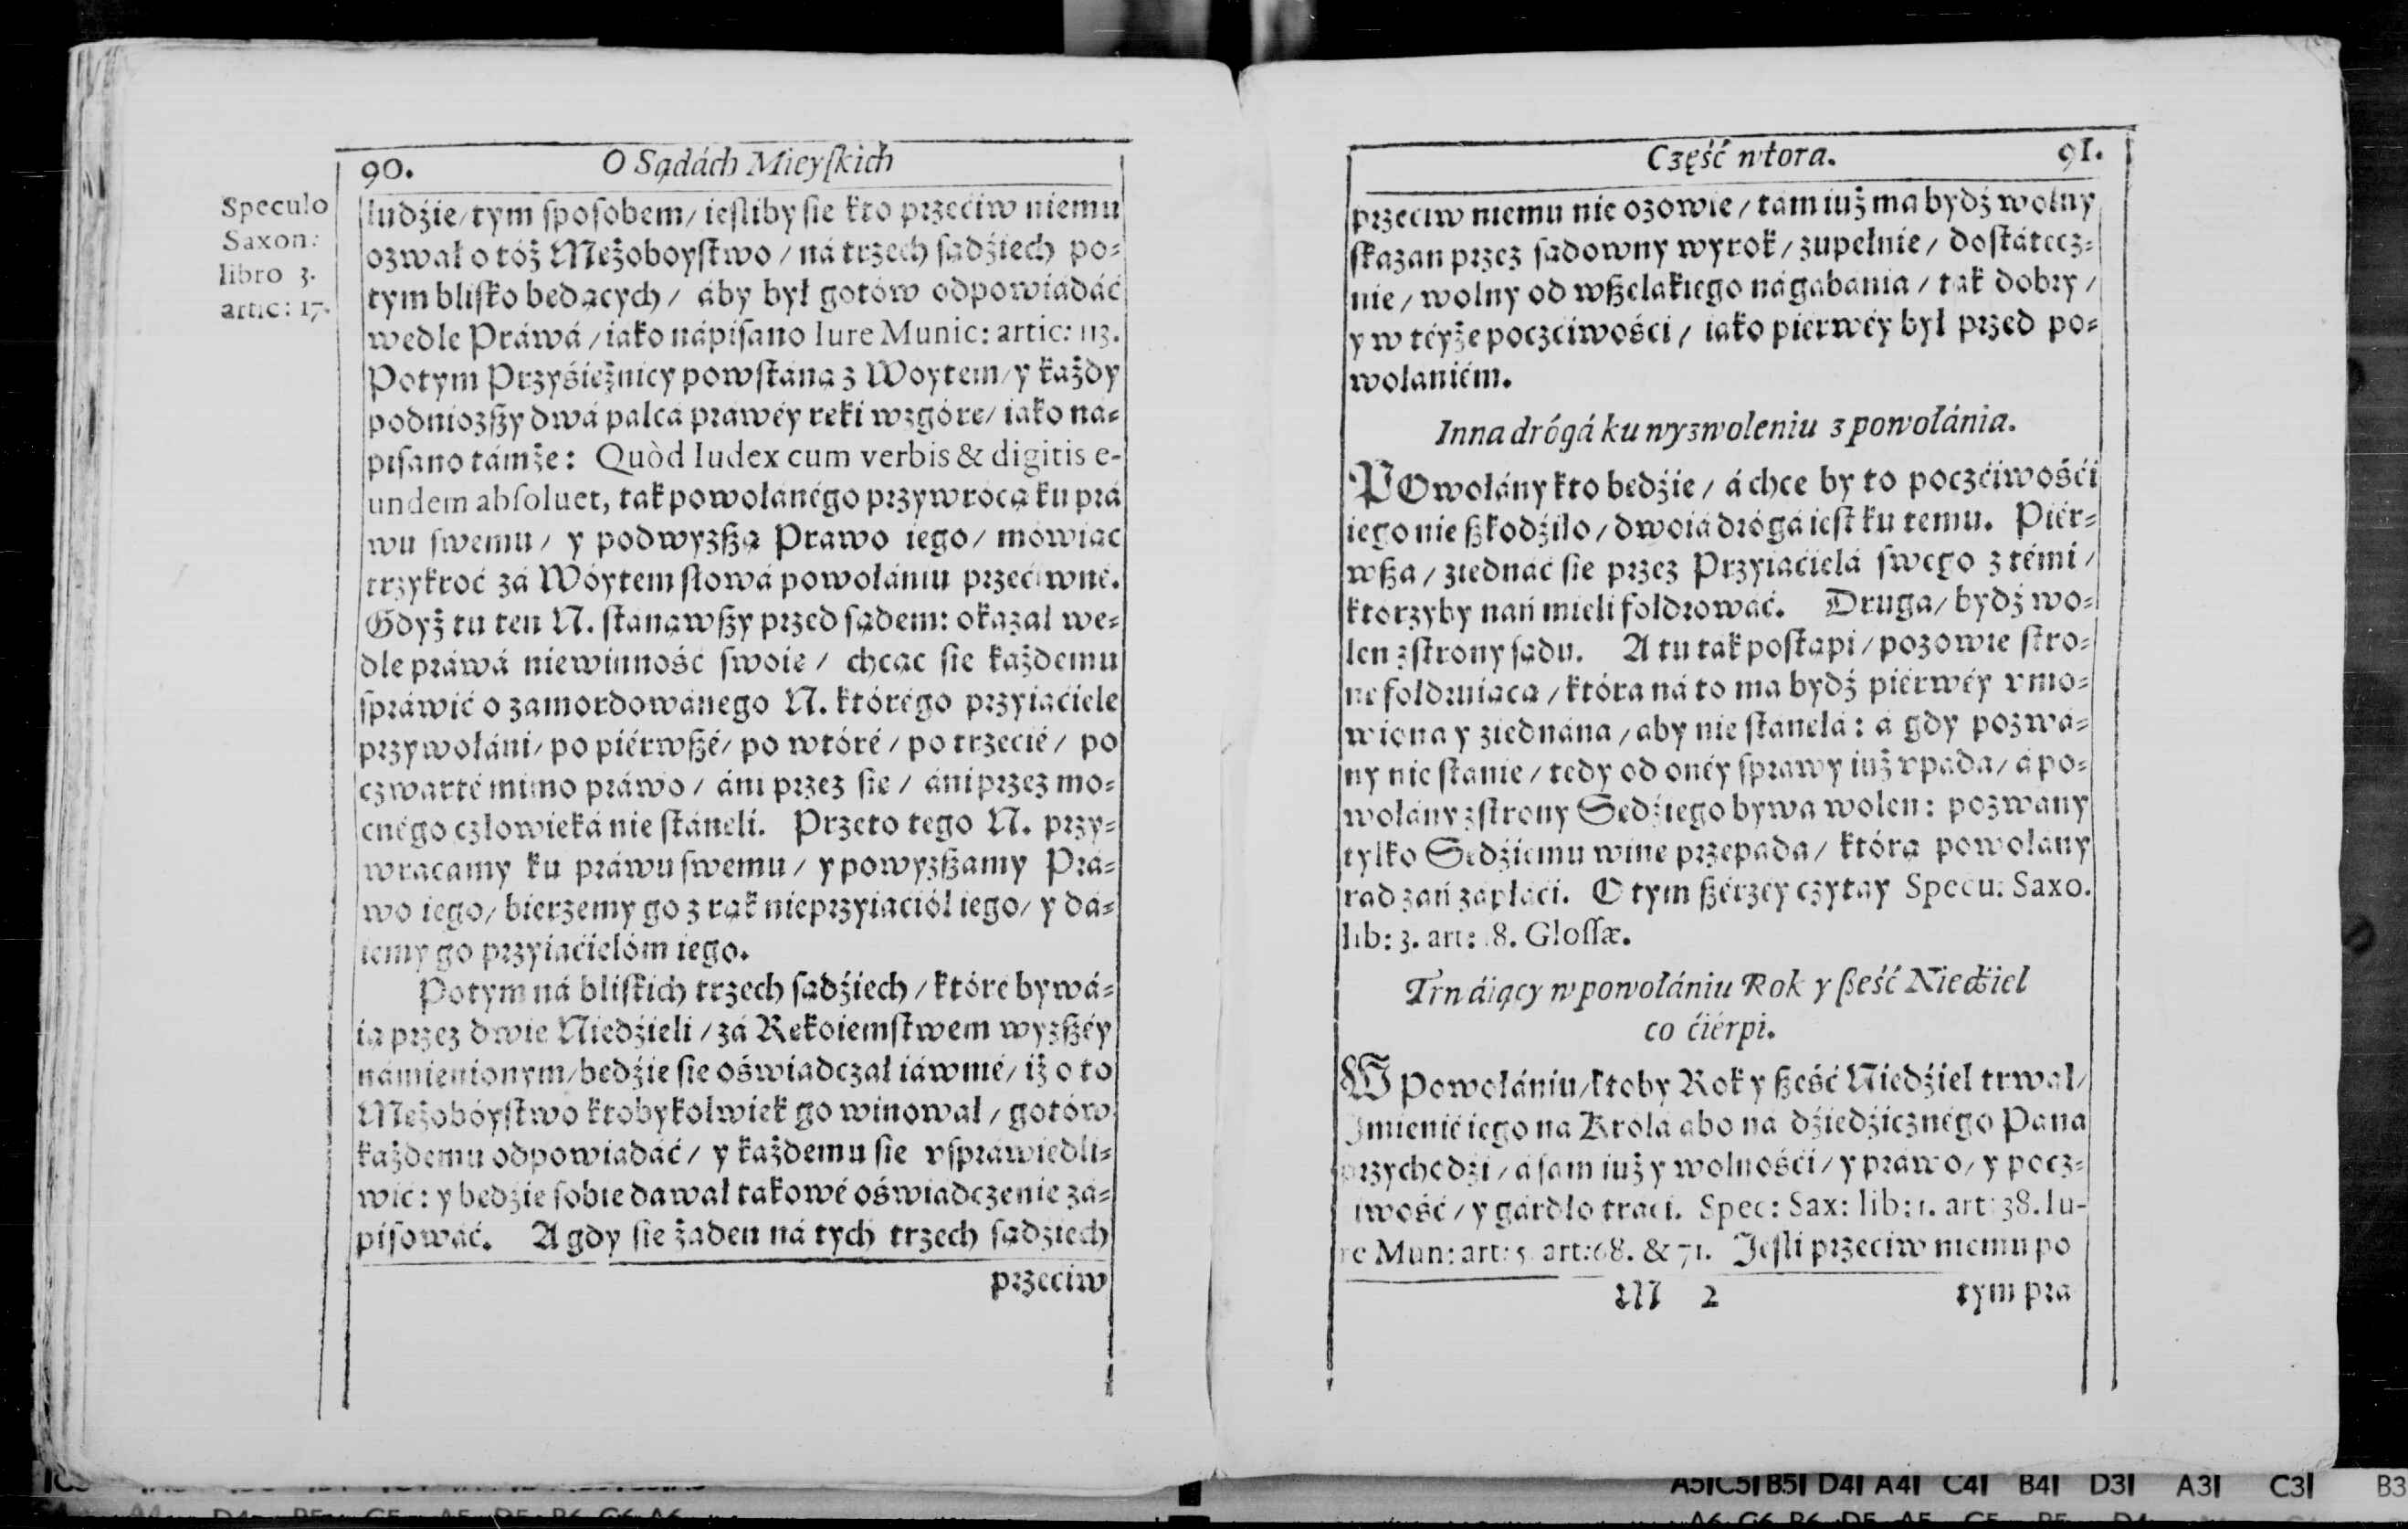 90. O Sądách Mieyſkich
Speculo
Saxon:
libro 3.
artic: 17.
ludźie/ tym ſpoſobem/ ieſliby ſie kto przećiw niemu
ozwał o tóż Mężoboyſtwo/ ná trzech ſądźiech po-
tym bliſko będących/ áby był gotów odpowiádáć
wedle Práwá/ iáko nápiſano Iure Munic: artic: 113.
Potym Przyśiężnicy powſtáną z Woytem/ y każdy
podniozßy dwá pálcá práwéy ręki wzgórę/ iáko ná-
piſano támże: Quòd Iudex cum verbis & digitis e-
undem abſoluet, ták powołánégo przywrócą ku prá
wu ſwemu/ y podwyzßą Práwo iego/ mówiąc
trzykroć zá Wóytem ſłowá powołániu przećiwné.
Gdyż tu ten N. ſtánąwßy przed ſądem: okazał we-
dle práwá niewinność ſwoię/ chcąc ſie káżdemu
ſpráwić o zámordowánego N. którégo przyiaćiele
przywołáni/ po piérwßé/ po wtóré/ po trzećié/ po
czwarté mimo práwo/ áni przez ſię/ áni przez mo-
cnégo człowieká nie ſtánęli. Przeto tego N. przy-
wracamy ku práwu ſwemu/ y powyzßamy Prá-
wo iego/ bierzemy go z rąk nieprzyiaćiół iego/ y dá-
iemy go przyiaćielóm iego.
Potym ná bliſkich trzech ſądźiech/ któré bywá-
ią przez dwie Niedźieli/ zá Rękoiemſtwem wyzßéy
námienionym/ będźie ſie oświadczał iáwnie/ iż o to
Mężobóyſtwo ktobykolwiek go winował/ gotów
każdemu odpowiádáć/ y każdemu ſie vſpráwiedli-
wić: y będźie ſobie dawał tákowé oświadczenie zá-
piſowáć. A gdy ſie żaden ná tych trzech ſądźiech
przećiw
Część wtora. 91.
przećiw niemu nie ozowie/ tám iuż ma bydź wolny
ſkazan przez ſądowny wyrok/ zupełnie/ doſtátecz-
nie/ wolny od wßelákiego nágábánia/ ták dobry/
y w téyże poczćiwośći/ iáko piérwéy był przed po-
wołániém.
Inna drógá ku wyzwoleniu z powołánia.
POwołány kto będźie/ á chce by to poczćiwośći
iego nie ßkodźiło/ dwoiá drógá ieſt ku temu. Piér-
wßa/ ziednáć ſie przez Przyiaćielá ſwego z témi/
ktorzyby nań mieli foldrowáć. Druga/ bydź wo-
len z ſtrony ſądu. A tu ták poſtąpi/ pozowie ſtro-
nę foldruiącą/ która ná to ma bydź piérwéy vmo-
wiona y ziednána/ áby nie ſtánęłá: á gdy pozwá-
ny nie ſtánie/ tedy od onéy ſpráwy iuż vpada/ á po-
wołány z ſtrony Sędźiego bywa wolen: pozwány
tylko Sędźiemu winę przepada/ którą powołány
rad zań zápłáći. O tym ßérzéy czytay Specu: Saxo.
lib: 3. art: 18. Gloſſæ.
Trwáiący w powołániu Rok y ßeść Niedźiel
co ćiérpi.
W Powołániu/ ktoby Rok y ßeść Niedźiel trwał/
Imienié iego na Królá ábo na dźiedźicznégo Páná
przychodźi/ á ſam iuż y wolnośći/ y práwo/ y pocz-
ćiwość/ y gárdło traći. Spec: Sax: lib: 1. art: 38. Iu-
re Mun: art: 5. art: 68. & 71. Ieſli przećiw niemu po
M 2 tym prá
A5 C5 B5 D4 A4 C4 B4 D3 A3 C3 B3